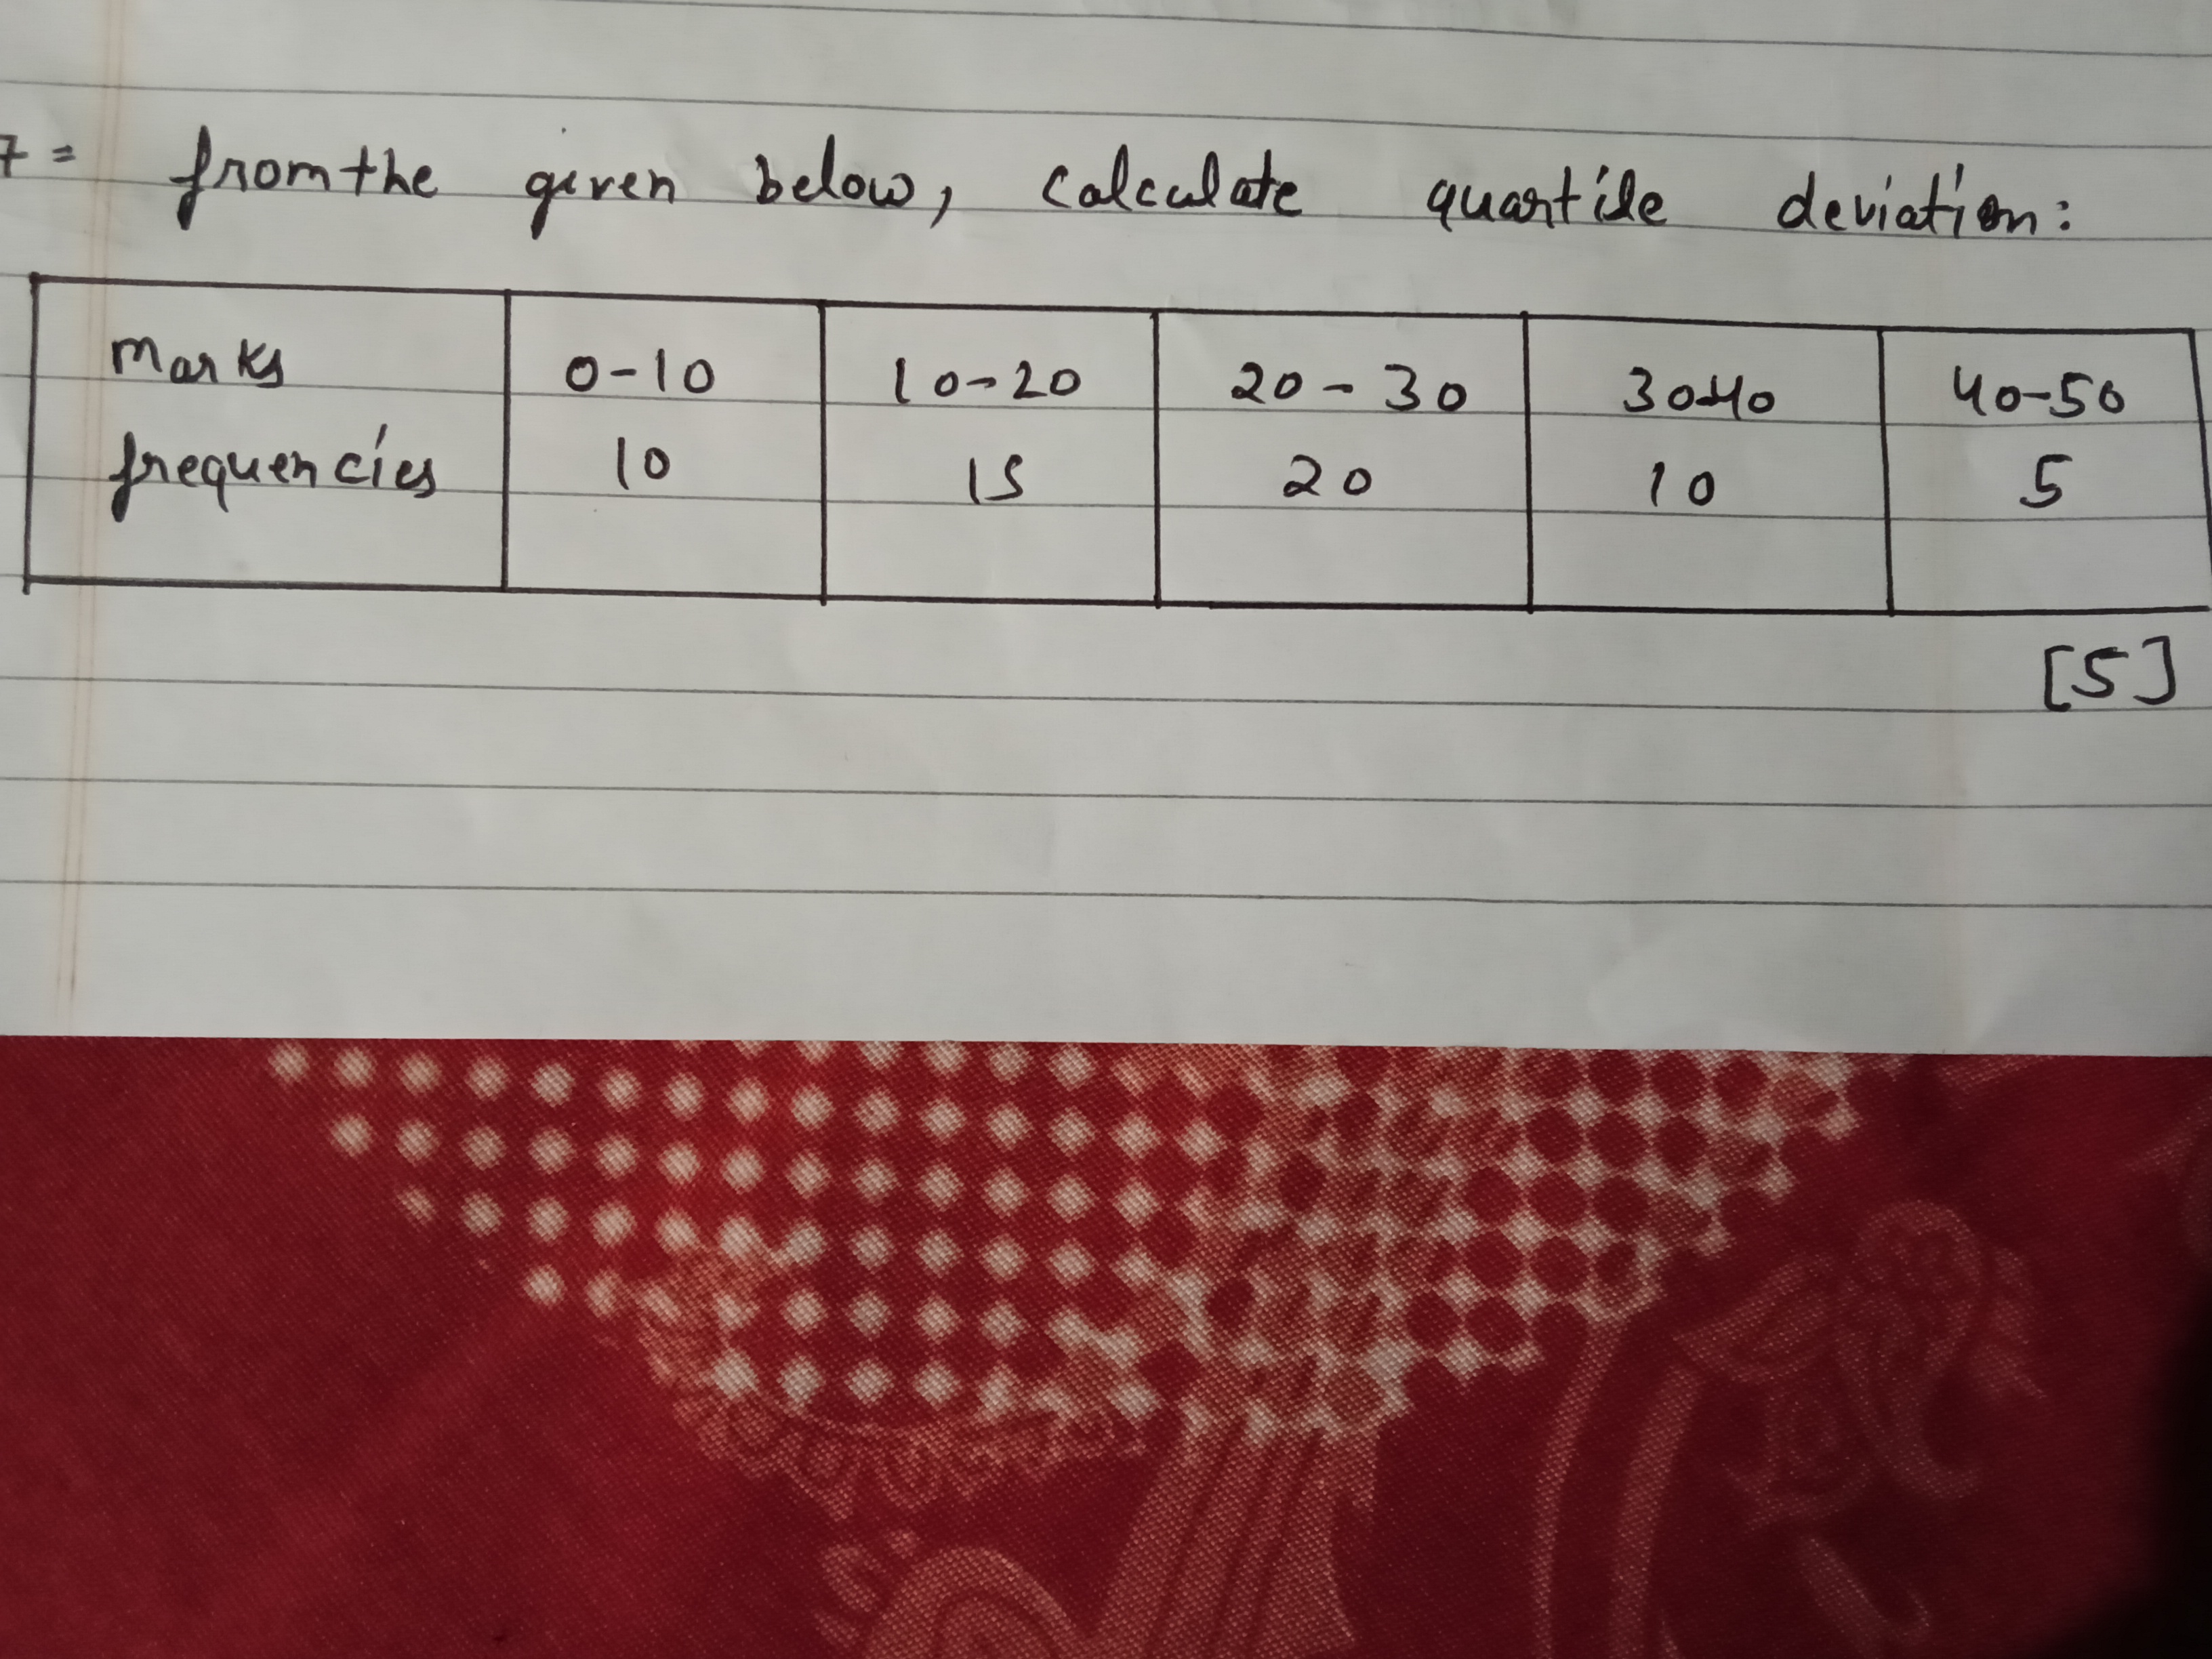 7 = from the given below, calculate quartile deviation:
Marks 0-10 10-20 20-30 30-40 40-50
frequencies 10 15 20 10 5
[5]